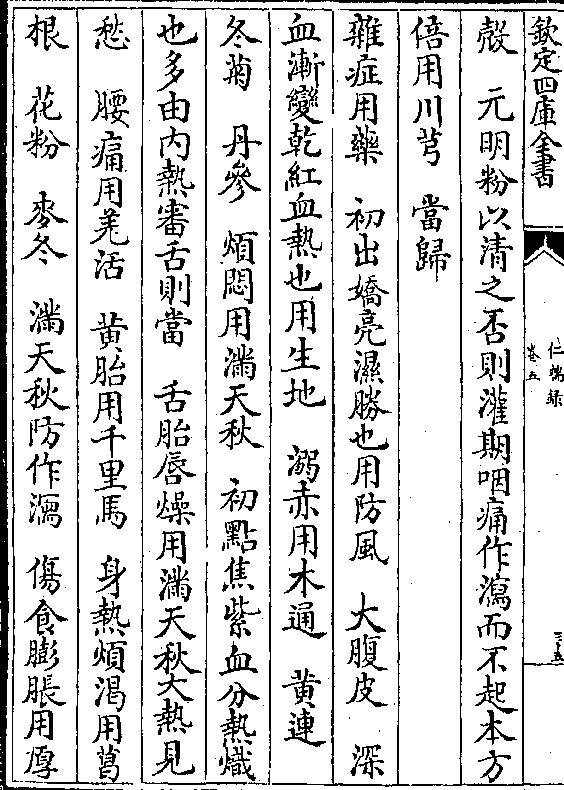 欽定四庫全書
仁端録
卷五
殼 元明粉以清之否則灌期咽痛作瀉而不起本方
倍用川芎 當歸
雜症用藥 初出嬌亮濕勝也用防風 大腹皮 深
血漸變乾紅血熱也用生地 溺赤用木通 黄連
冬菊 丹參 煩悶用滿天秋 初點焦紫血分熱熾
也多由内熱審舌則當 舌胎唇燥用滿天秋大熱見
愁 腰痛用羌活 黄胎用千里馬 身熱煩渴用葛
根 花粉 麥冬 滿天秋防作瀉 傷食膨脹用厚